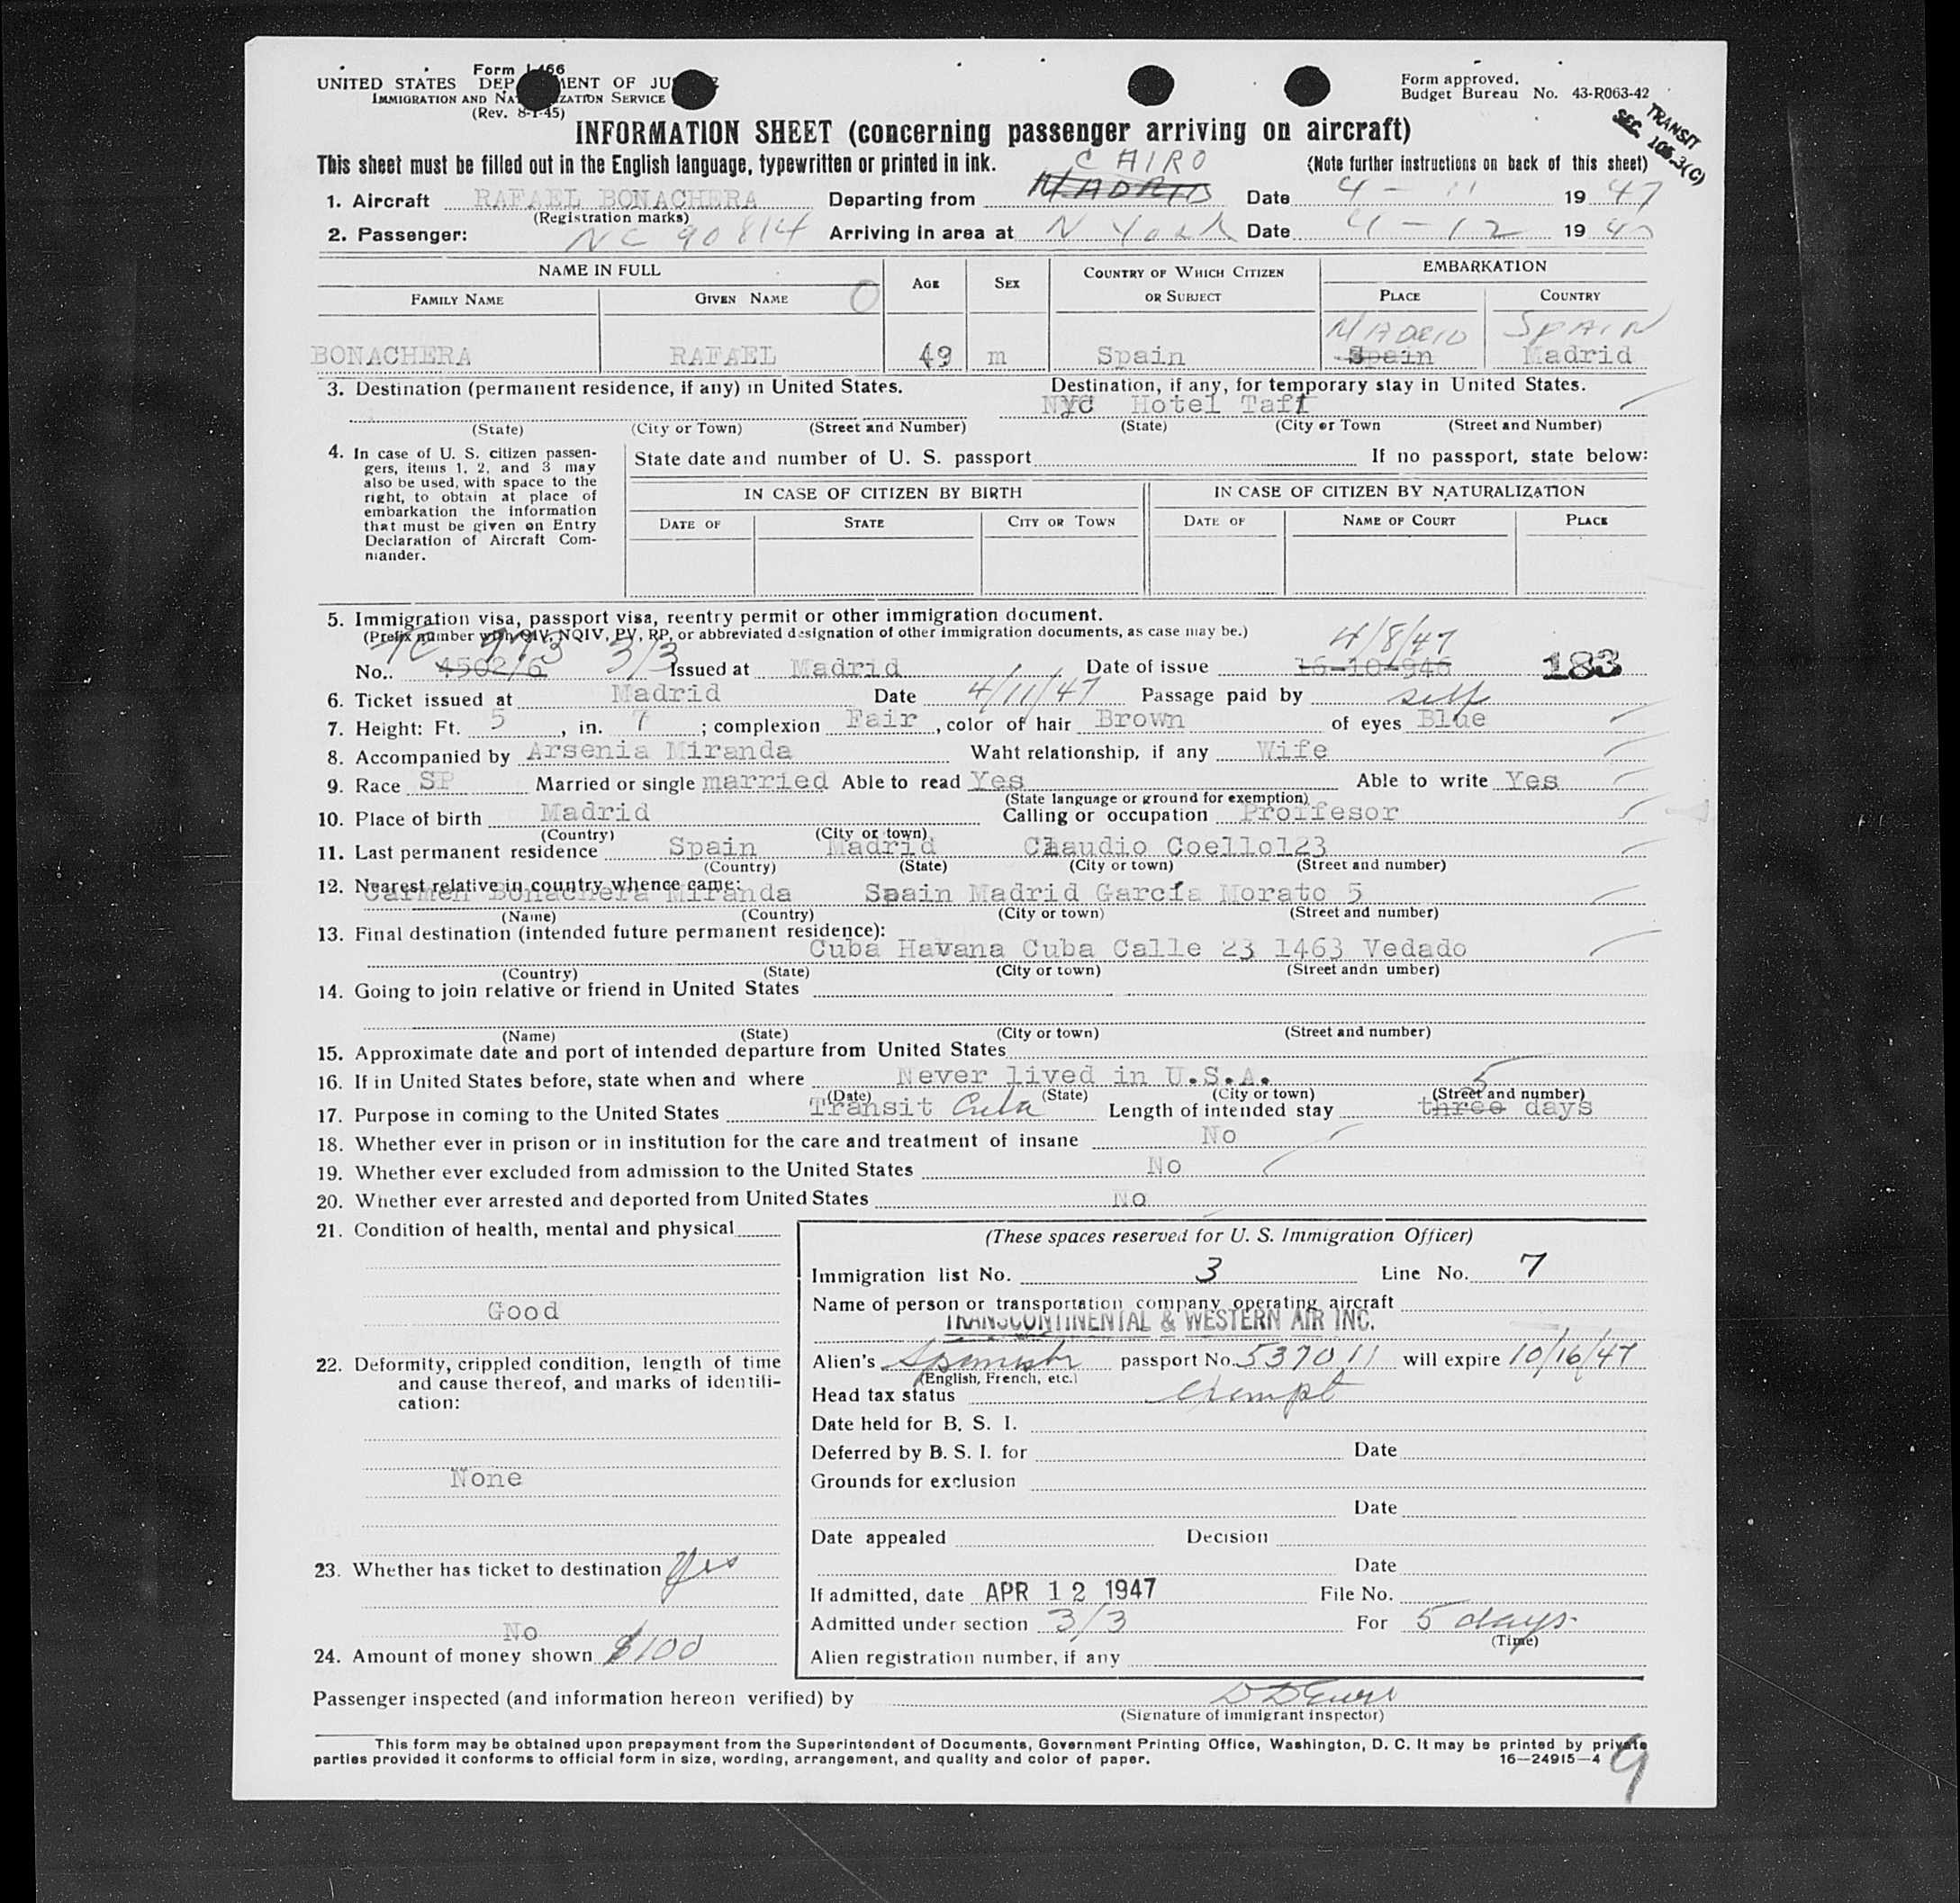 Form I-466
UNITED STATES DEPARTMENT OF JUSTICE
IMMIGRATION AND NATURALIZATION SERVICE
(Rev. 8-1-45)
Form approved.
Budget Bureau No. 43-R063-42
TRANSIT
SEC. 105.3(C)
INFORMATION SHEET (concerning passenger arriving on aircraft)
This sheet must be filled out in the English language, typewritten or printed in ink. (Note further instructions on back of this sheet)
CAIRO
1. Aircraft RAFAEL BONACHERA Departing from MADRID Date 4 - 11 19 47
(Registration marks)
2. Passenger: NC 90814 Arriving in area at N York Date 4 - 12 19 47
NAME IN FULL AGE SEX COUNTRY OF WHICH CITIZEN OR SUBJECT EMBARKATION
FAMILY NAME GIVEN NAME PLACE COUNTRY
MADRID SPAIN
BONACHERA RAFAEL 49 m Spain Spain Madrid
3. Destination (permanent residence, if any) in United States. Destination, if any, for temporary stay in United States.
NYC Hotel Taft
(State) (City or Town) (Street and Number) (State) (City or Town (Street and Number)
4. In case of U. S. citizen passengers, items 1, 2, and 3 may also be used, with space to the right, to obtain at place of embarkation the information that must be given on Entry Declaration of Aircraft Commander.
State date and number of U. S. passport If no passport, state below:
IN CASE OF CITIZEN BY BIRTH IN CASE OF CITIZEN BY NATURALIZATION
DATE OF STATE CITY OR TOWN DATE OF NAME OF COURT PLACE
5. Immigration visa, passport visa, reentry permit or other immigration document.
(Prefix number with QIV, NQIV, PV, RP, or abbreviated designation of other immigration documents, as case may be.)
TC 973 3/3 4/8/47
No.. 4502/6 Issued at Madrid Date of issue 16-10-946 183
6. Ticket issued at Madrid Date 4/11/47 Passage paid by self
7. Height: Ft. 5, in. 7; complexion Fair, color of hair Brown of eyes Blue
8. Accompanied by Arsenia Miranda Waht relationship, if any Wife
9. Race SP Married or single married Able to read Yes Able to write Yes
(State language or ground for exemption)
10. Place of birth Madrid Calling or occupation Proffesor
(Country) (City or town)
11. Last permanent residence Spain Madrid Claudio Coello123
(Country) (State) (City or town) (Street and number)
12. Nearest relative in country whence came:
Carmen Bonachera Miranda Spain Madrid García Morato 5
(Name) (Country) (City or town) (Street and number)
13. Final destination (intended future permanent residence):
Cuba Havana Cuba Calle 23 1463 Vedado
(Country) (State) (City or town) (Street andn umber)
14. Going to join relative or friend in United States
(Name) (State) (City or town) (Street and number)
15. Approximate date and port of intended departure from United States
16. If in United States before, state when and where Never lived in U.S.A.
(Date) (State) (City or town) (Street and number)
5
17. Purpose in coming to the United States Transit Cuba Length of intended stay three days
18. Whether ever in prison or in institution for the care and treatment of insane No
19. Whether ever excluded from admission to the United States No
20. Whether ever arrested and deported from United States No
21. Condition of health, mental and physical
Good
22. Deformity, crippled condition, length of time and cause thereof, and marks of identification:
None
23. Whether has ticket to destination Yes
No
24. Amount of money shown $100
(These spaces reserved for U. S. Immigration Officer)
Immigration list No. 3 Line No. 7
Name of person or transportation company operating aircraft
TRANSCONTINENTAL & WESTERN AIR INC.
Alien's Spanish passport No. 537011 will expire 10/16/47
(English, French, etc.)
Head tax status exempt
Date held for B. S. I.
Deferred by B. S. I. for Date
Grounds for exclusion
Date
Date appealed Decision
Date
If admitted, date APR 12 1947 File No.
Admitted under section 3/3 For 5 days
(Time)
Alien registration number, if any
Passenger inspected (and information hereon verified) by
(Signature of immigrant inspector)
This form may be obtained upon prepayment from the Superintendent of Documents, Government Printing Office, Washington, D. C. It may be printed by private
parties provided it conforms to official form in size, wording, arrangement, and quality and color of paper. 16—24915—4
9